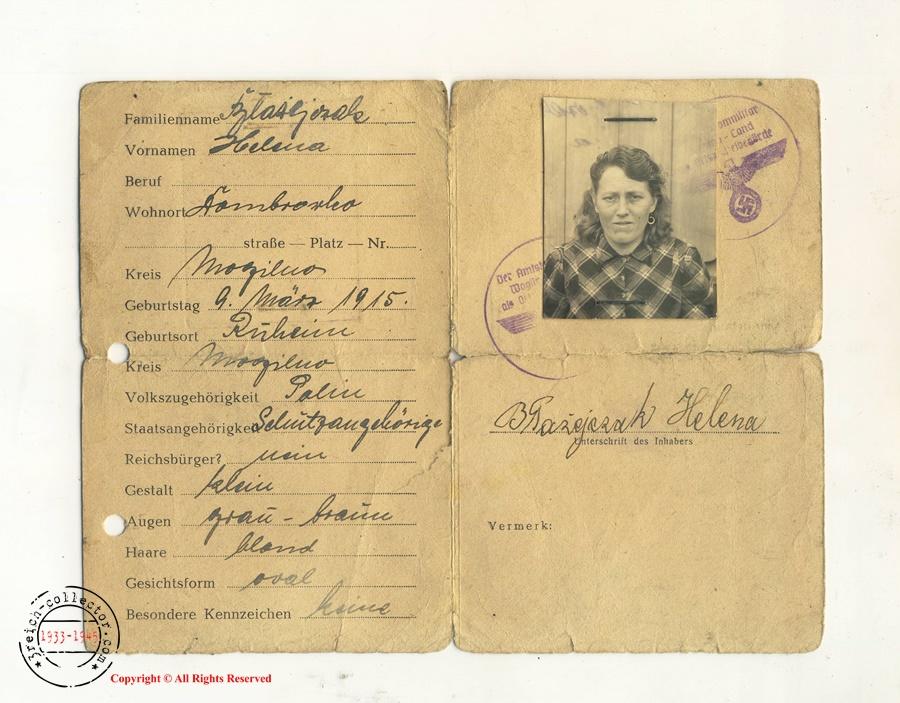 Familienname Błażejczak
Vornamen Helena
Beruf
Wohnort Dombrowko
straße — Platz — Nr.
Kreis Mogilno
Geburtstag 9. März 1915.
Geburtsort Ruheim
Kreis Mogilno
Volkszugehörigkeit Polin
Staatsangehörigkeit Schutzangehörige
Reichsbürger? nein
Gestalt klein
Augen grau - braun
Haare blond
Gesichtsform oval
Besondere Kennzeichen keine
Land
Der Amts
als
Błażejczak Helena
Unterschrift des Inhabers
Vermerk:
3reich-collector.com
1933-1945
Copyright © All Rights Reserved